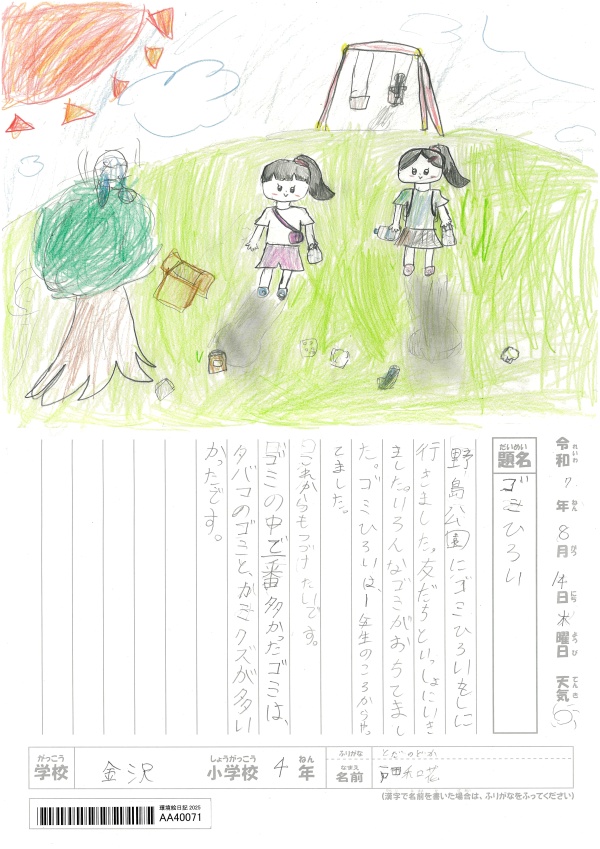 令和7年8月14日木曜日 天気
れいわ ねん がつ にち ようび てんき
だいめい
題名 ゴミひろい
野島公園にゴミひろいをしに
行きました。友だちといっしょにいき
ました。いろんなゴミがおちてまし
た。ゴミひろいは、1年生のころからや
てました。
これからもつづけたいです。
ゴミの中で一番多かったゴミは、
タバコのゴミと、かミクズが多い
かったです。
がっこう
学校
金沢
しょうがっこう
小学校
4
ねん
年
ふりがな
とだのどか
なまえ
名前
戸田和花
(漢字で名前を書いた場合は、ふりがなをふってください)
環境絵日記 2025
AA40071